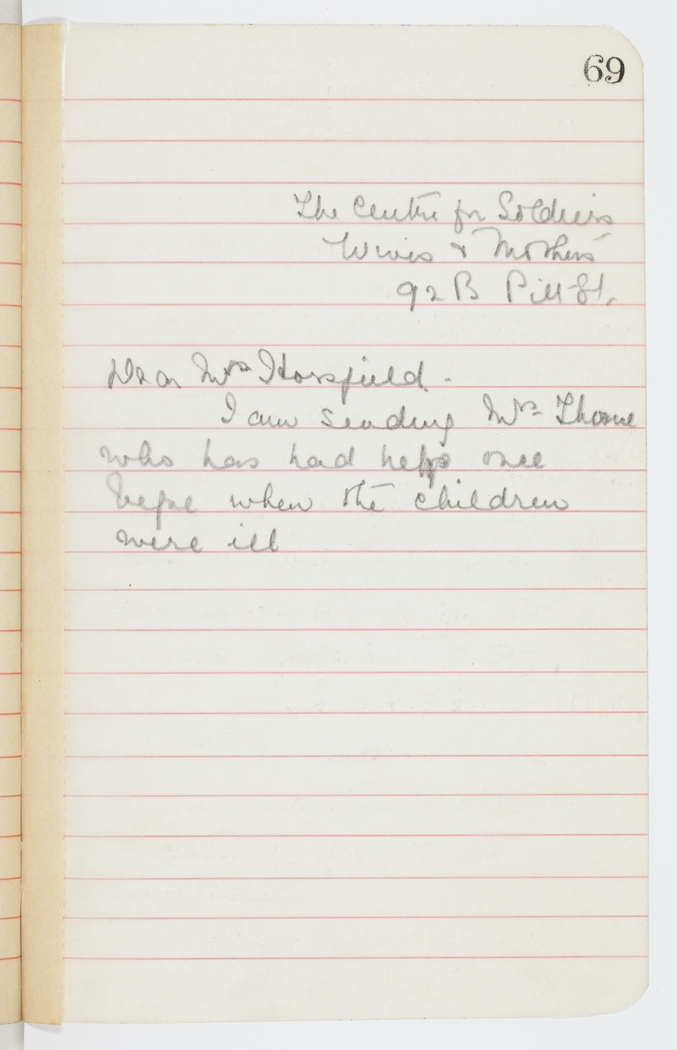 69
The Centre for Soldiers
Wives & Mothers
92 B Pitt St.
Dear Mrs Horsfield -
I am sending Mrs Thorne
who has had help once
before when the children
were ill